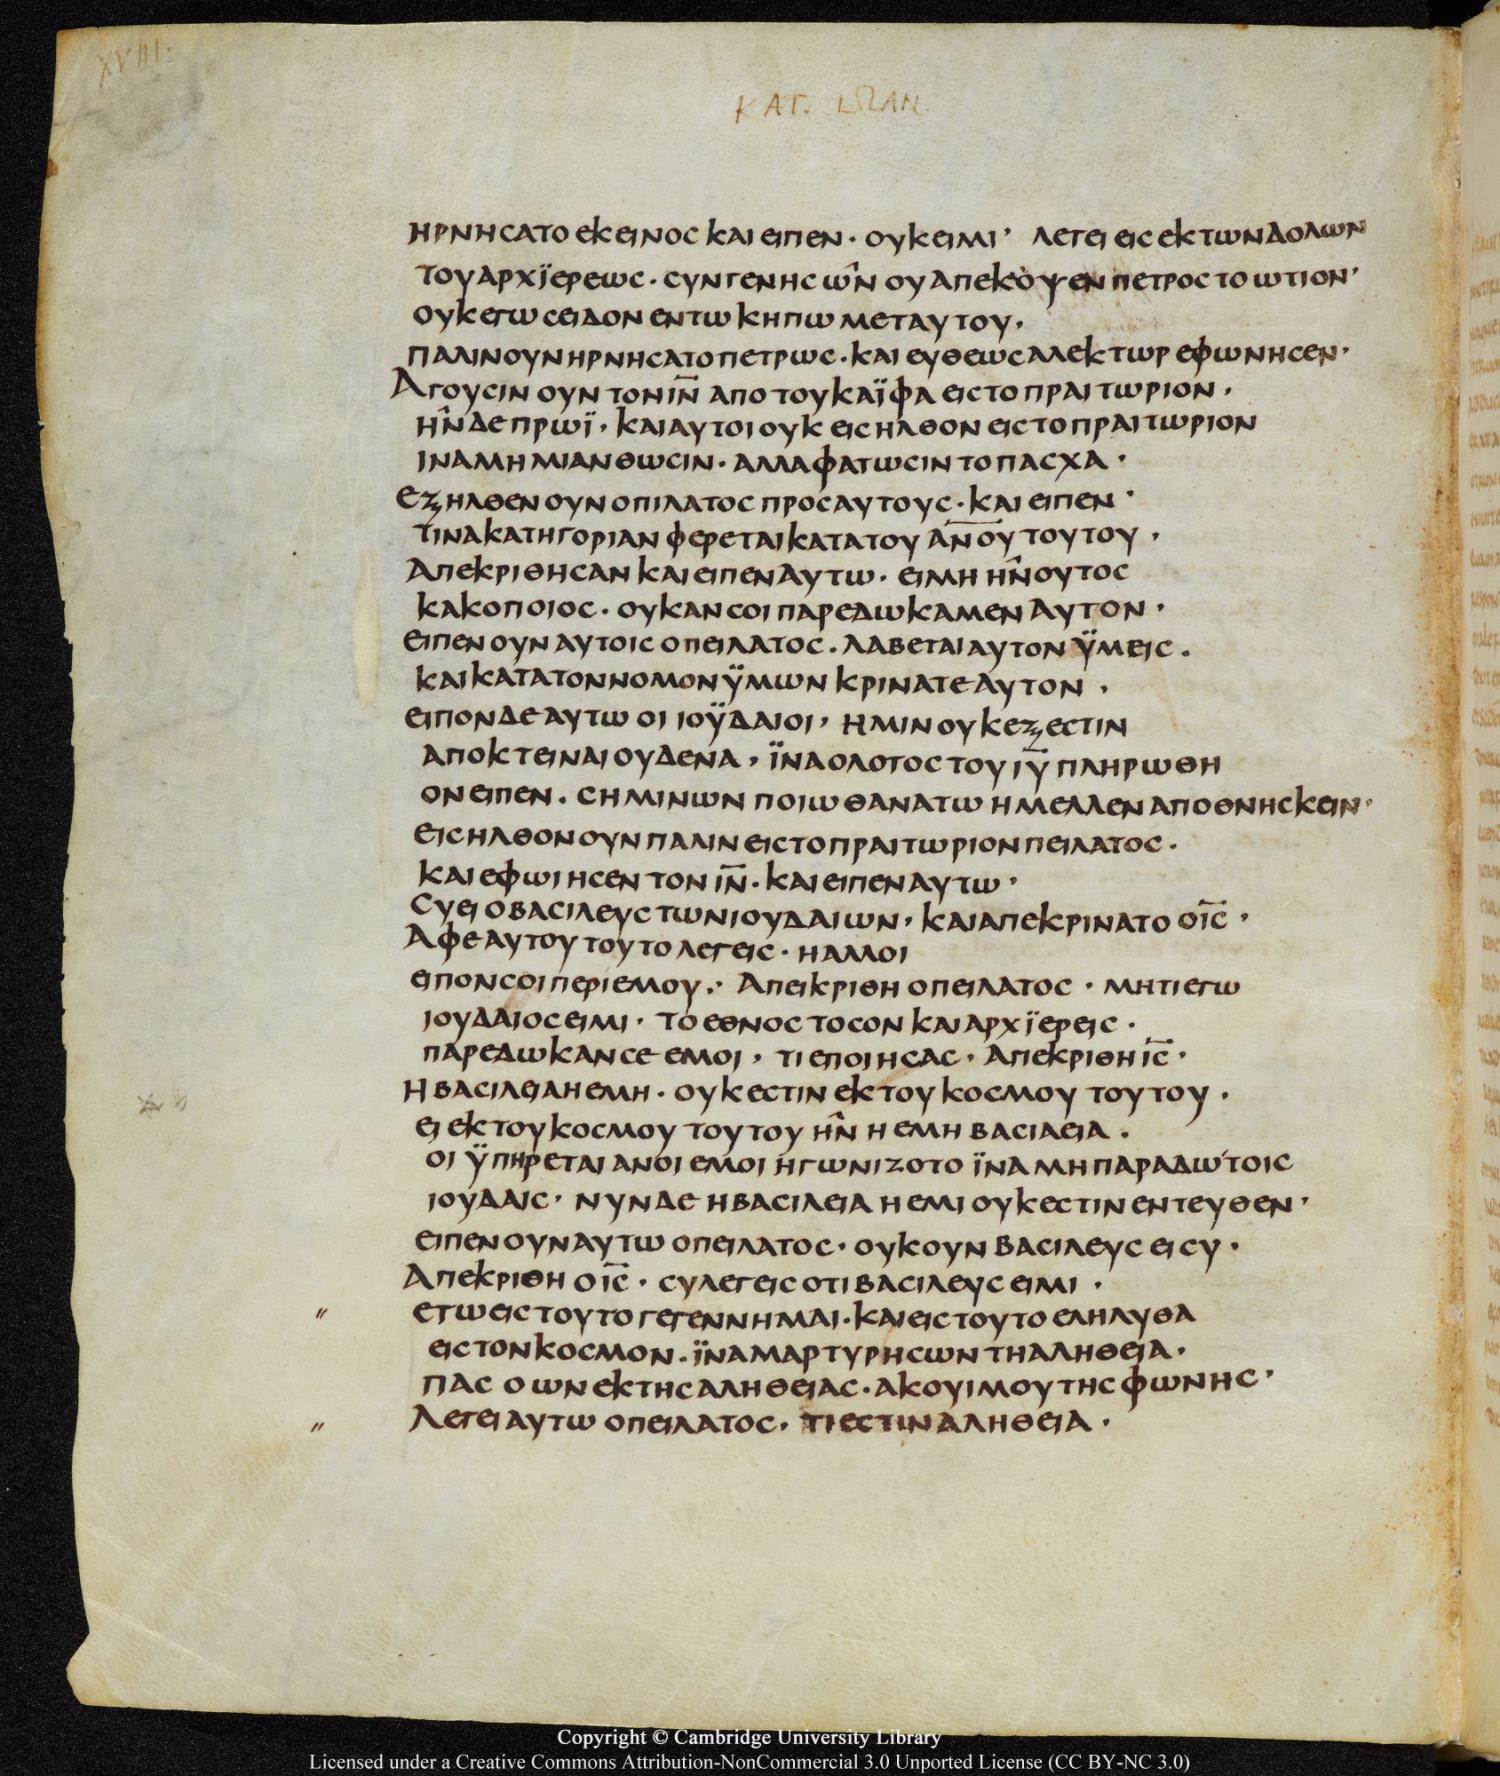 XVIII.
ΚΑΤ. ΙΩΑΝ.
ΗΡΝΗϹΑΤΟ ΕΚΕΙΝΟϹ ΚΑΙ ΕΙΠΕΝ · ΟΥΚ ΕΙΜΙ · ΛΕΓΕΙ ΕΙϹ ΕΚ ΤΩΝ ΔΟΛΩΝ
ΤΟΥ ΑΡΧΪΕΡΕΩϹ · ϹΥΝΓΕΝΗϹ ΩΝ ΟΥ ΑΠΕΚΟΨΕΝ ΠΕΤΡΟϹ ΤΟ ΩΤΙΟΝ ·
ΟΥΚ ΕΓΩ ϹΕΙΔΟΝ ΕΝ ΤΩ ΚΗΠΩ ΜΕΤ ΑΥΤΟΥ ·
ΠΑΛΙΝ ΟΥΝ ΗΡΝΗϹΑΤΟ ΠΕΤΡΩϹ · ΚΑΙ ΕΥΘΕΩϹ ΑΛΕΚΤΩΡ ΕΦΩΝΗϹΕΝ ·
ΑΓΟΥϹΙΝ ΟΥΝ ΤΟΝ ΙΝ̅ ΑΠΟ ΤΟΥ ΚΑΪΦΑ ΕΙϹ ΤΟ ΠΡΑΙΤΩΡΙΟΝ ·
ΗΝ ΔΕ ΠΡΩΪ · ΚΑΙ ΑΥΤΟΙ ΟΥΚ ΕΙϹΗΛΘΟΝ ΕΙϹ ΤΟ ΠΡΑΙΤΩΡΙΟΝ
ΙΝΑ ΜΗ ΜΙΑΝΘΩϹΙΝ · ΑΛΛΑ ΦΑΤΩϹΙΝ ΤΟ ΠΑϹΧΑ ·
ΕΞΗΛΘΕΝ ΟΥΝ Ο ΠΙΛΑΤΟϹ ΠΡΟϹ ΑΥΤΟΥϹ · ΚΑΙ ΕΙΠΕΝ ·
ΤΙΝΑ ΚΑΤΗΓΟΡΙΑΝ ΦΕΡΕΤΑΙ ΚΑΤΑ ΤΟΥ ΑΝ̅ΟΥ ΤΟΥΤΟΥ ·
ΑΠΕΚΡΙΘΗϹΑΝ ΚΑΙ ΕΙΠΕΝ ΑΥΤΩ · ΕΙ ΜΗ ΗΝ ΟΥΤΟϹ
ΚΑΚΟΠΟΙΟϹ · ΟΥΚ ΑΝ ϹΟΙ ΠΑΡΕΔΩΚΑΜΕΝ ΑΥΤΟΝ ·
ΕΙΠΕΝ ΟΥΝ ΑΥΤΟΙϹ Ο ΠΕΙΛΑΤΟϹ · ΛΑΒΕΤΑΙ ΑΥΤΟΝ ΫΜΕΙϹ ·
ΚΑΙ ΚΑΤΑ ΤΟΝ ΝΟΜΟΝ ΫΜΩΝ ΚΡΙΝΑΤΕ ΑΥΤΟΝ ·
ΕΙΠΟΝ ΔΕ ΑΥΤΩ ΟΙ ΙΟΫΔΑΙΟΙ · ΗΜΙΝ ΟΥΚ ΕΞΕϹΤΙΝ
ΑΠΟΚΤΕΙΝΑΙ ΟΥΔΕΝΑ · ΪΝΑ Ο ΛΟΓΟϹ ΤΟΥ ΙΥ̅ ΠΛΗΡΩΘΗ
ΟΝ ΕΙΠΕΝ · ϹΗΜΙΝΩΝ ΠΟΙΩ ΘΑΝΑΤΩ ΗΜΕΛΛΕΝ ΑΠΟΘΝΗϹΚΕΙΝ ·
ΕΙϹΗΛΘΟΝ ΟΥΝ ΠΑΛΙΝ ΕΙϹ ΤΟ ΠΡΑΙΤΩΡΙΟΝ ΠΕΙΛΑΤΟϹ ·
ΚΑΙ ΕΦΩΙΗϹΕΝ ΤΟΝ ΙΝ̅ · ΚΑΙ ΕΙΠΕΝ ΑΥΤΩ ·
ϹΥ ΕΙ Ο ΒΑϹΙΛΕΥϹ ΤΩΝ ΙΟΥΔΑΙΩΝ · ΚΑΙ ΑΠΕΚΡΙΝΑΤΟ Ο ΙϹ̅ ·
ΑΦΕΑΥΤΟΥ ΤΟΥΤΟ ΛΕΓΕΙϹ · Η ΑΛΛΟΙ
ΕΙΠΟΝ ϹΟΙ ΠΕΡΙ ΕΜΟΥ · ΑΠΕΙΚΡΙΘΗ Ο ΠΕΙΛΑΤΟϹ · ΜΗΤΙ ΕΓΩ
ΙΟΥΔΑΙΟϹ ΕΙΜΙ · ΤΟ ΕΘΝΟϹ ΤΟ ϹΟΝ ΚΑΙ ΑΡΧΪΕΡΕΙϹ ·
ΠΑΡΕΔΩΚΑΝ ϹΕ ΕΜΟΙ · ΤΙ ΕΠΟΙΗϹΑϹ · ΑΠΕΚΡΙΘΗ ΙϹ̅ ·
Η ΒΑϹΙΛΕΙΑ Η ΕΜΗ · ΟΥΚ ΕϹΤΙΝ ΕΚ ΤΟΥ ΚΟϹΜΟΥ ΤΟΥΤΟΥ ·
ΕΙ ΕΚ ΤΟΥ ΚΟϹΜΟΥ ΤΟΥΤΟΥ ΗΝ Η ΕΜΗ ΒΑϹΙΛΕΙΑ ·
ΟΙ ΫΠΗΡΕΤΑΙ ΑΝ ΟΙ ΕΜΟΙ ΗΓΩΝΙΖΟΤΟ ΪΝΑ ΜΗ ΠΑΡΑΔΩ ΤΟΙϹ
ΙΟΥΔΑΙϹ · ΝΥΝ ΔΕ Η ΒΑϹΙΛΕΙΑ Η ΕΜΙ ΟΥΚ ΕϹΤΙΝ ΕΝΤΕΥΘΕΝ ·
ΕΙΠΕΝ ΟΥΝ ΑΥΤΩ Ο ΠΕΙΛΑΤΟϹ · ΟΥΚΟΥΝ ΒΑϹΙΛΕΥϹ ΕΙ ϹΥ ·
ΑΠΕΚΡΙΘΗ Ο ΙϹ̅ · ϹΥ ΛΕΓΕΙϹ ΟΤΙ ΒΑϹΙΛΕΥϹ ΕΙΜΙ ·
ΕΓΩ ΕΙϹ ΤΟΥΤΟ ΓΕΓΕΝΝΗΜΑΙ · ΚΑΙ ΕΙϹ ΤΟΥΤΟ ΕΛΗΛΥΘΑ
ΕΙϹ ΤΟΝ ΚΟϹΜΟΝ · ΪΝΑ ΜΑΡΤΥΡΗϹΩΝ ΤΗ ΑΛΗΘΕΙΑ ·
ΠΑϹ Ο ΩΝ ΕΚ ΤΗϹ ΑΛΗΘΕΙΑϹ · ΑΚΟΥΙ ΜΟΥ ΤΗϹ ΦΩΝΗϹ ·
ΛΕΓΕΙ ΑΥΤΩ Ο ΠΕΙΛΑΤΟϹ · ΤΙ ΕϹΤΙΝ ΑΛΗΘΕΙΑ ·
Copyright © Cambridge University Library
Licensed under a Creative Commons Attribution-NonCommercial 3.0 Unported License (CC BY-NC 3.0)